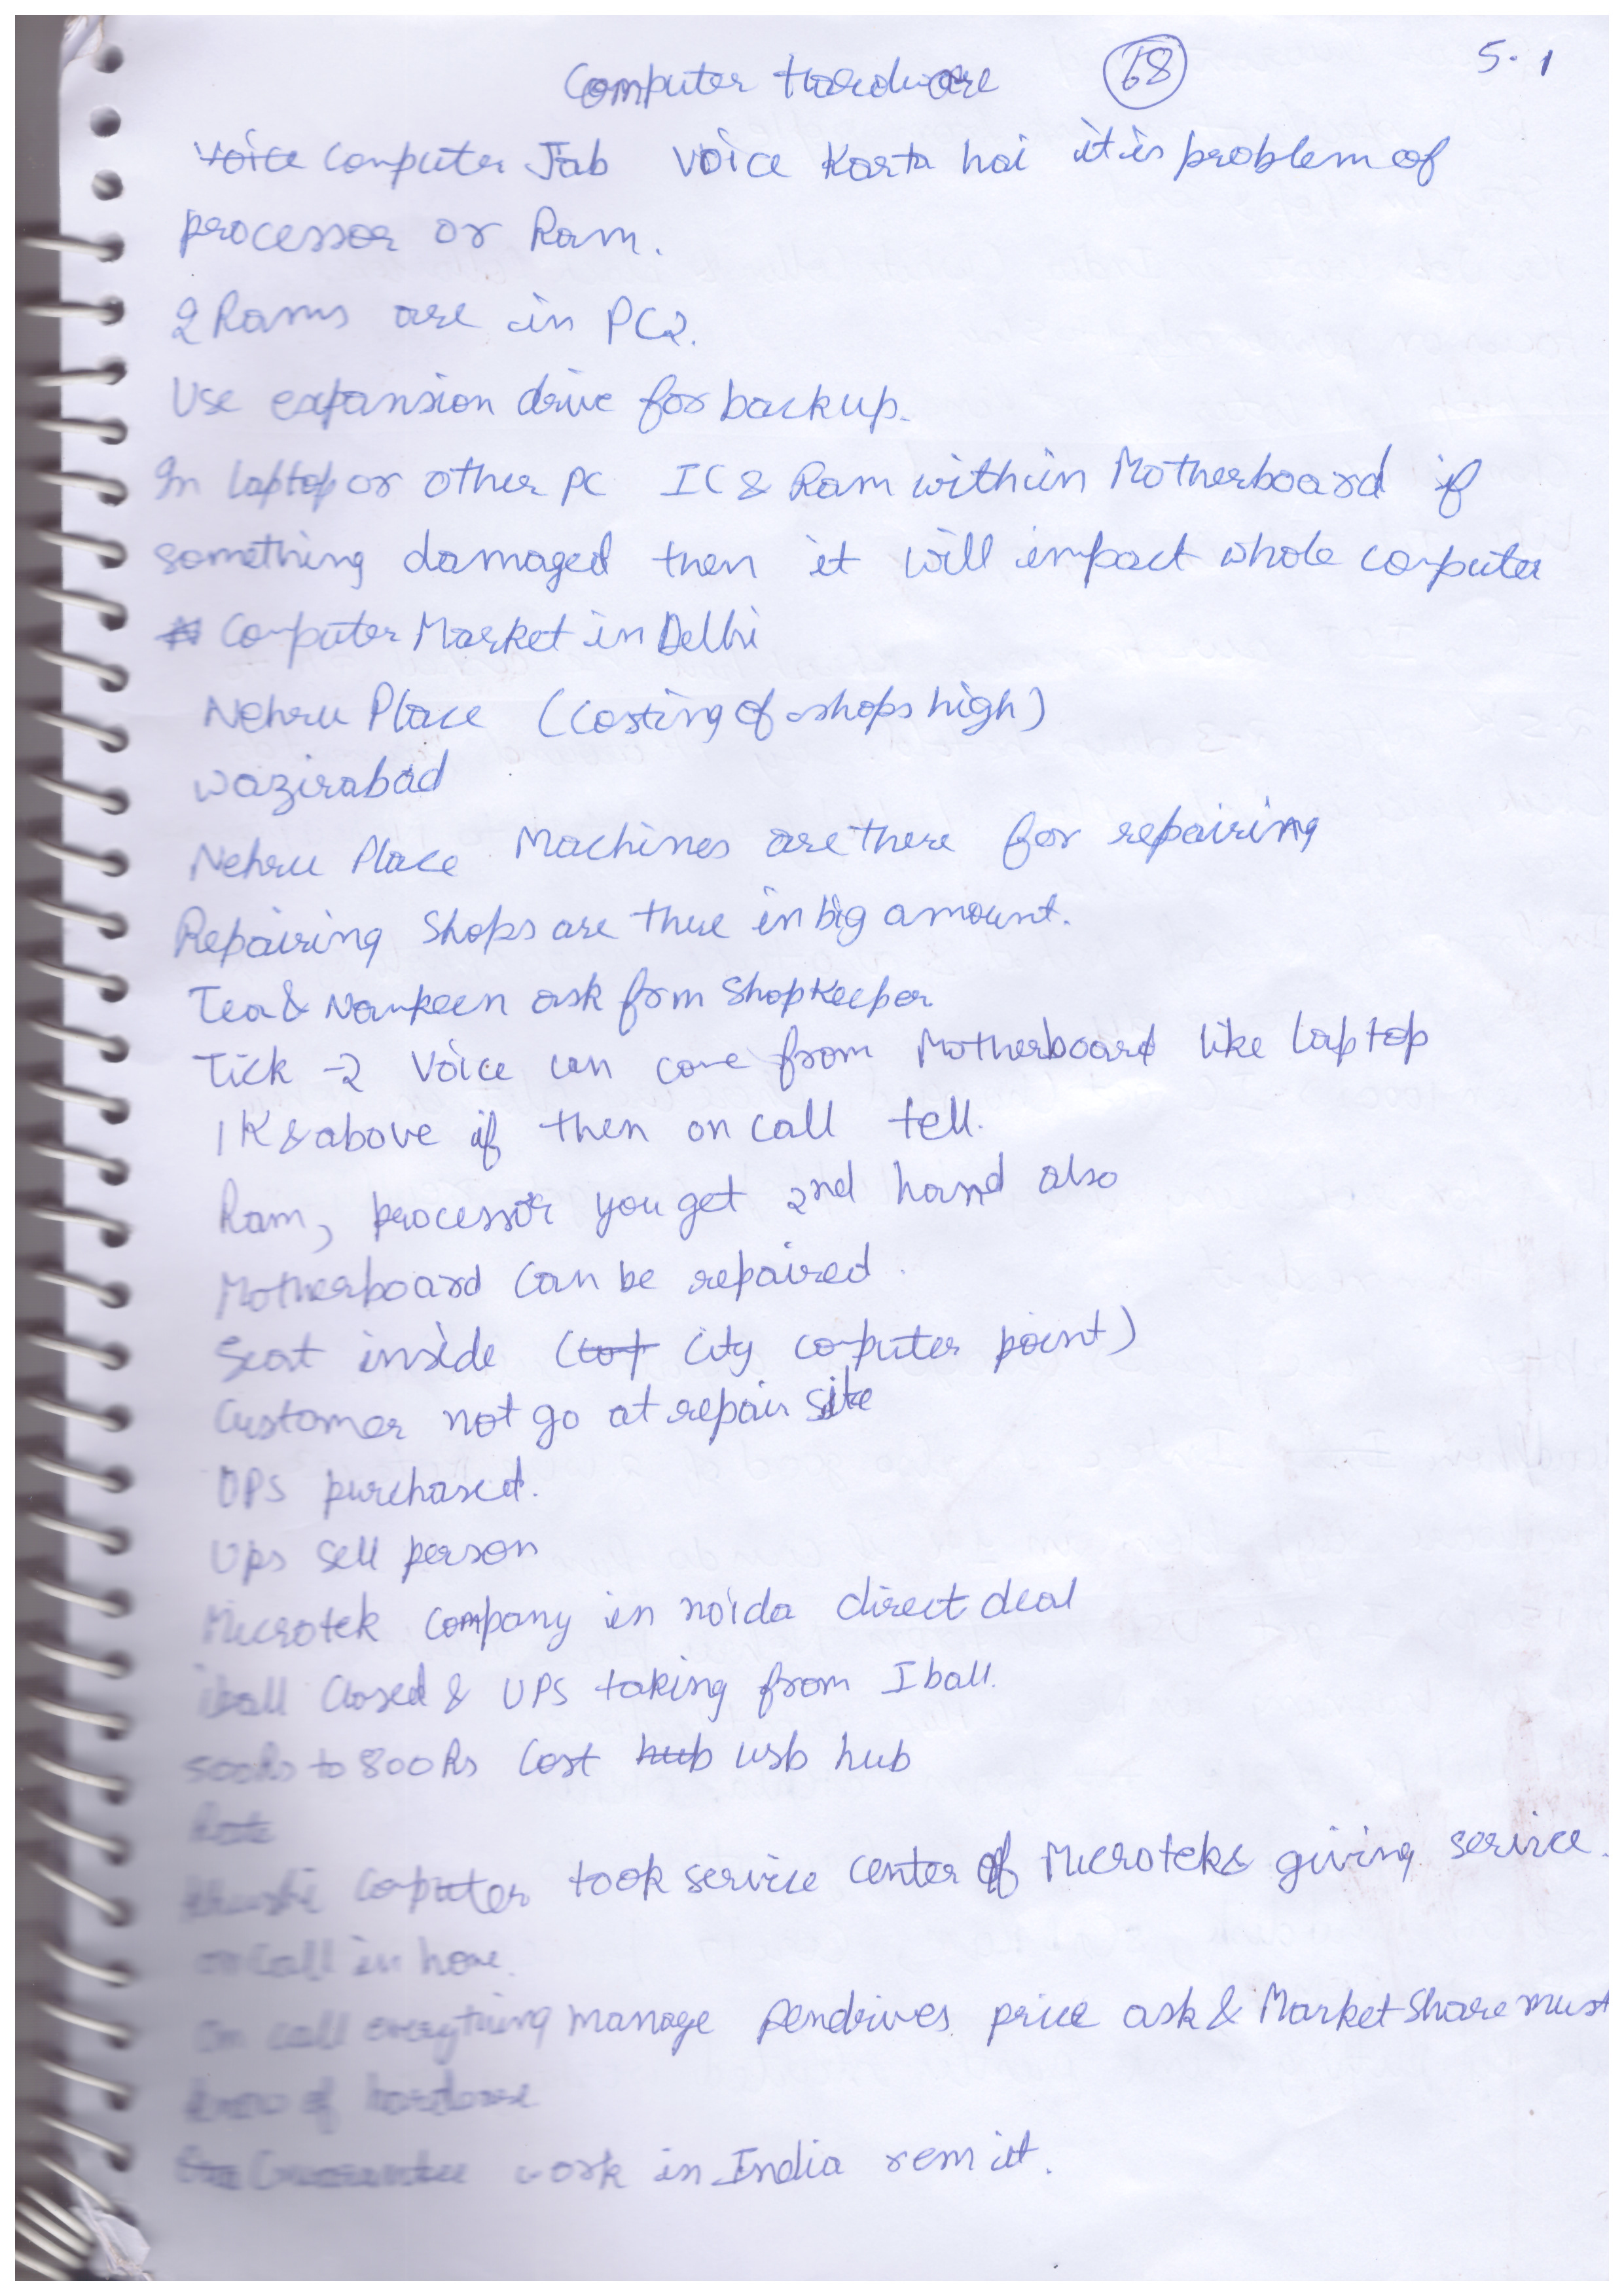 Computer Hardware 68 5.1
Voice Computer Jab voice Karta hai it is problem of
processor or Ram.
2 Rams are in PC2.
Use expansion drive for backup.
In laptop or other PC IC & Ram within Motherboard if
something damaged then it will impact whole computer
Computer Market in Delhi
Nehru Place (Costing of shops high)
Wazirabad
Nehru Place Machines are there for repairing
Repairing Shops are there in big amount.
Tea & Namkeen ask from Shopkeeper
Tick -2 Voice can come from Motherboard like laptop
1K & above if then on call tell.
Ram, processor you get 2nd hand also
Motherboard can be repaired.
Seat inside (top City computer point)
Customer not go at repair site
UPS purchased.
Ups sell person
Microtek Company in noida direct deal
iball Closed & UPS taking from Iball.
500Rs to 800Rs Cost hub usb hub
Rate
Computer took service center of Microtek & giving service.
on call in home.
On call everything manage pendrives price ask & Market Share must
know of hardware
Guarantee work in India rem it.